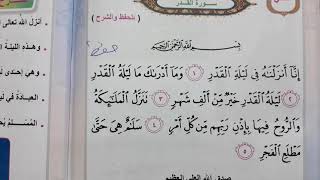 سورة القدر
(للحفظ والشرح)
بِسْمِ اللَّهِ الرَّحْمَٰنِ الرَّحِيمِ
إِنَّا أَنزَلْنَاهُ فِي لَيْلَةِ الْقَدْرِ ١ وَمَا أَدْرَاكَ مَا لَيْلَةُ الْقَدْرِ
٢ لَيْلَةُ الْقَدْرِ خَيْرٌ مِّنْ أَلْفِ شَهْرٍ ٣ تَنَزَّلُ الْمَلَائِكَةُ
وَالرُّوحُ فِيهَا بِإِذْنِ رَبِّهِم مِّن كُلِّ أَمْرٍ ٤ سَلَامٌ هِيَ حَتَّىٰ
مَطْلَعِ الْفَجْرِ ٥
صدق الله العلي العظيم
أنزل الله تعالى
وهذه الليلة
وهي إحدى
العبادة في